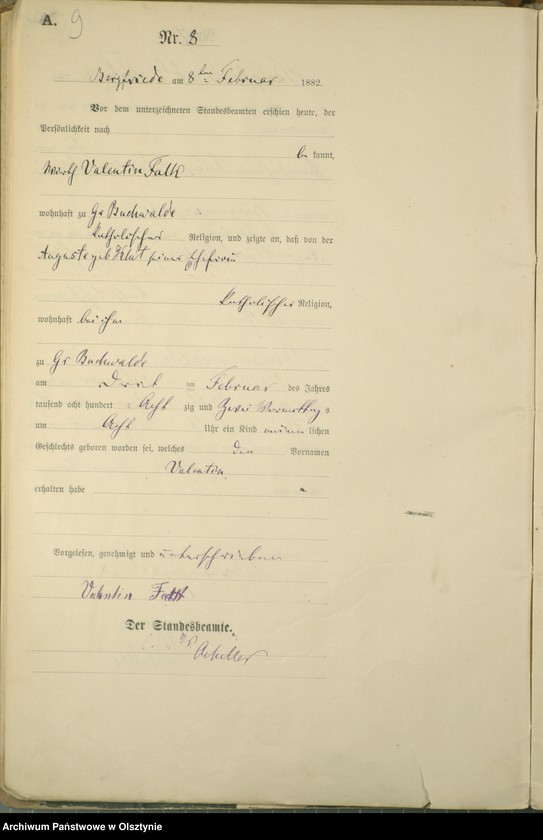 A. 9
Nr. 8
Bergfriede am 8ten Februar 1882
Vor dem unterzeichneten Standesbeamten erschien heute, der
Persönlichkeit nach
be kannt,
Wirth Valentin Falk
wohnhaft zu Gr Buchwalde
katholischer Religion, und zeigte an, daß von der
Auguste geb seiner Ehefrau
katholischer Religion,
wohnhaft bei ihm
zu Gr Buchwalde
am im Februar des Jahres
tausend acht hundert Acht zig und Zwei Vormittag s
um Acht Uhr ein Kind männ lichen
Geschlechts geboren worden sei, welches den Vornamen
Valentin
erhalten habe
Vorgelesen, genehmigt und unterschrieben
Valentin
Der Standesbeamte.
Archiwum Państwowe w Olsztynie